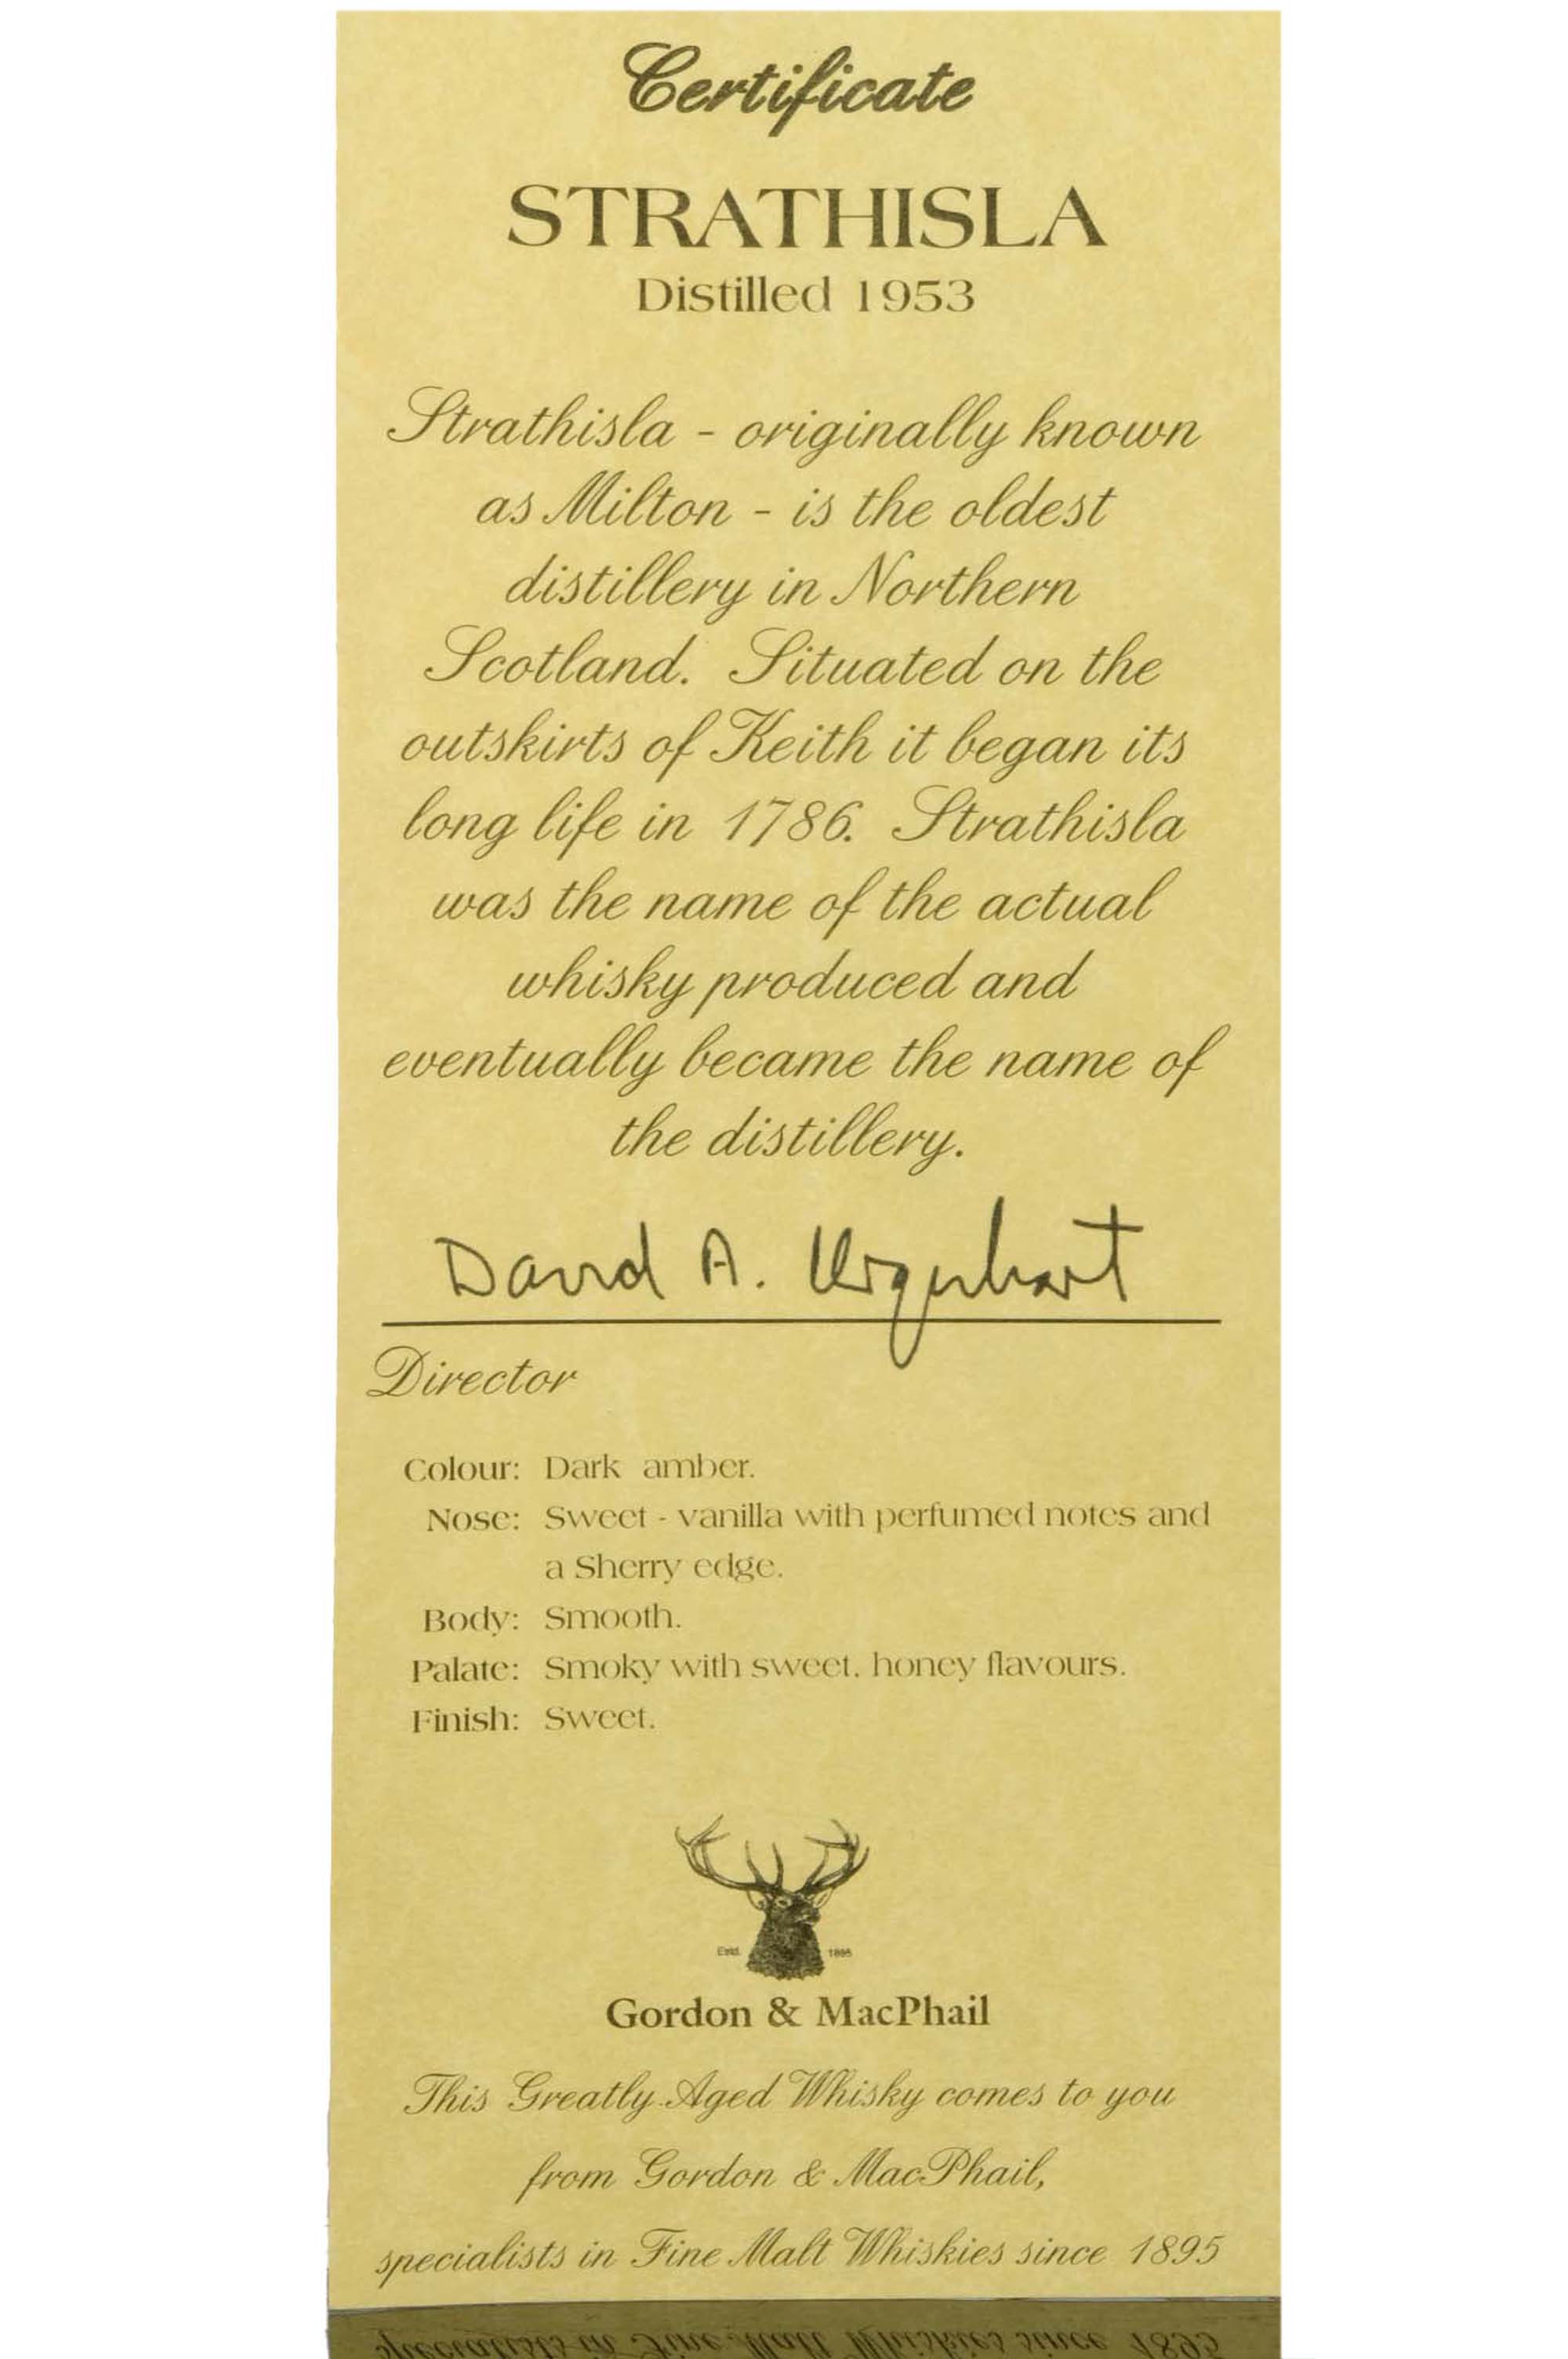 Certificate
STRATHISLA
Distilled 1953
Strathisla - originally known
as Milton - is the oldest
distillery in Northern
Scotland. Situated on the
outskirts of Keith it began its
long life in 1786. Strathisla
was the name of the actual
whisky produced and
eventually became the name of
the distillery.
David A. Urquhart
Director
Colour: Dark amber.
Nose: Sweet - vanilla with perfumed notes and
a Sherry edge.
Body: Smooth.
Palate: Smoky with sweet, honey flavours.
Finish: Sweet.
Estd. 1895
Gordon & MacPhail
This Greatly Aged Whisky comes to you
from Gordon & MacPhail,
specialists in Fine Malt Whiskies since 1895